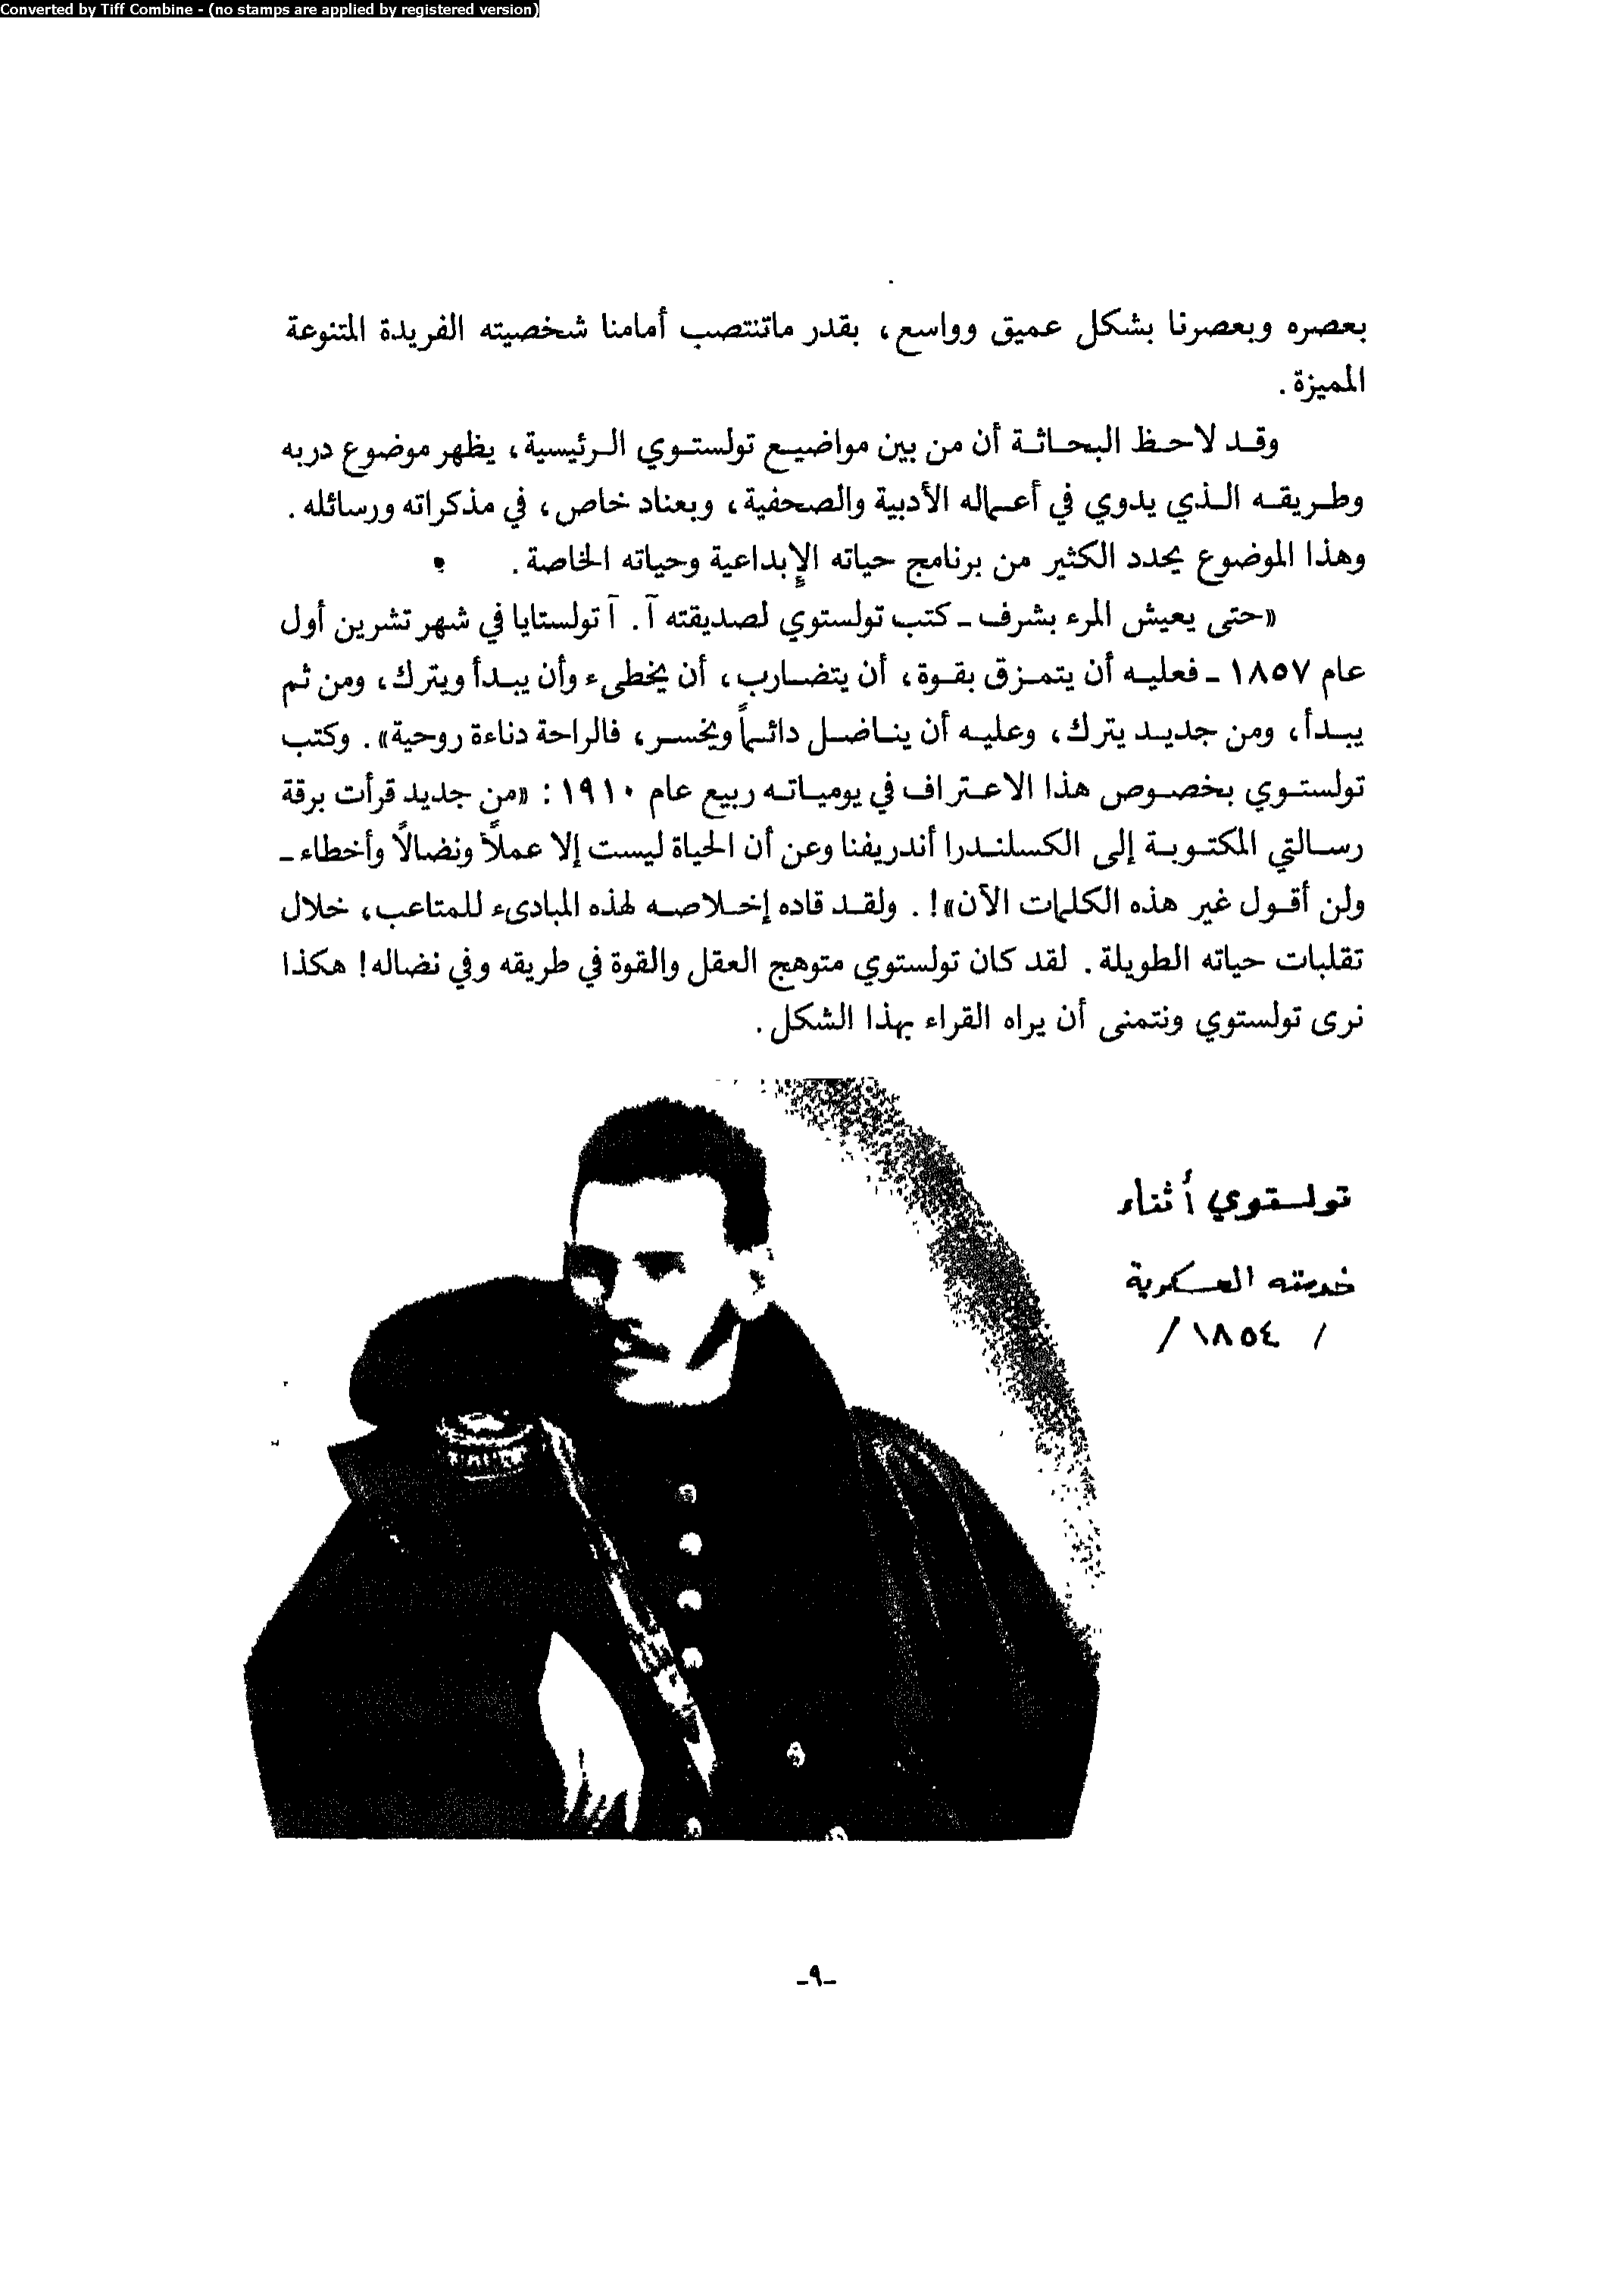 Converted by Tiff Combine - (no stamps are applied by registered version)
بعصره وبعصرنا بشكل عميق وواسع، بقدر ماتنتصب أمامنا شخصيته الفريدة المتنوعة
المميزة.
وقد لاحظ البحاثة أن من بين مواضيع تولستوي الرئيسية، يظهر موضوع دربه
وطريقه الذي يدوي في أعماله الأدبية والصحفية، وبعناد خاص، في مذكراته ورسائله.
وهذا الموضوع يحدد الكثير من برنامج حياته الإبداعية وحياته الخاصة.
«حتى يعيش المرء بشرف - كتب تولستوي لصديقته آ. آ تولستايا في شهر تشرين أول
عام ١٨٥٧ - فعليه أن يتمزق بقوة، أن يتضارب، أن يخطىء وأن يبدأ ويترك، ومن ثم
يبدأ، ومن جديد يترك، وعليه أن يناضل دائماً ويخسر، فالراحة دناءة روحية». وكتب
تولستوي بخصوص هذا الاعتراف في يومياته ربيع عام ١٩١٠: «من جديد قرأت برقة
رسالتي المكتوبة إلى الكسلندرا أندريفنا وعن أن الحياة ليست إلا عملاً ونضالاً وأخطاء -
ولن أقول غير هذه الكلمات الآن»!. ولقد قاده إخلاصه لهذه المبادىء للمتاعب، خلال
تقلبات حياته الطويلة. لقد كان تولستوي متوهج العقل والقوة في طريقه وفي نضاله! هكذا
نرى تولستوي ونتمنى أن يراه القراء بهذا الشكل.
تولستوي أثناء
خدمته العسكرية
/ ١٨٥٤ /
-٩-